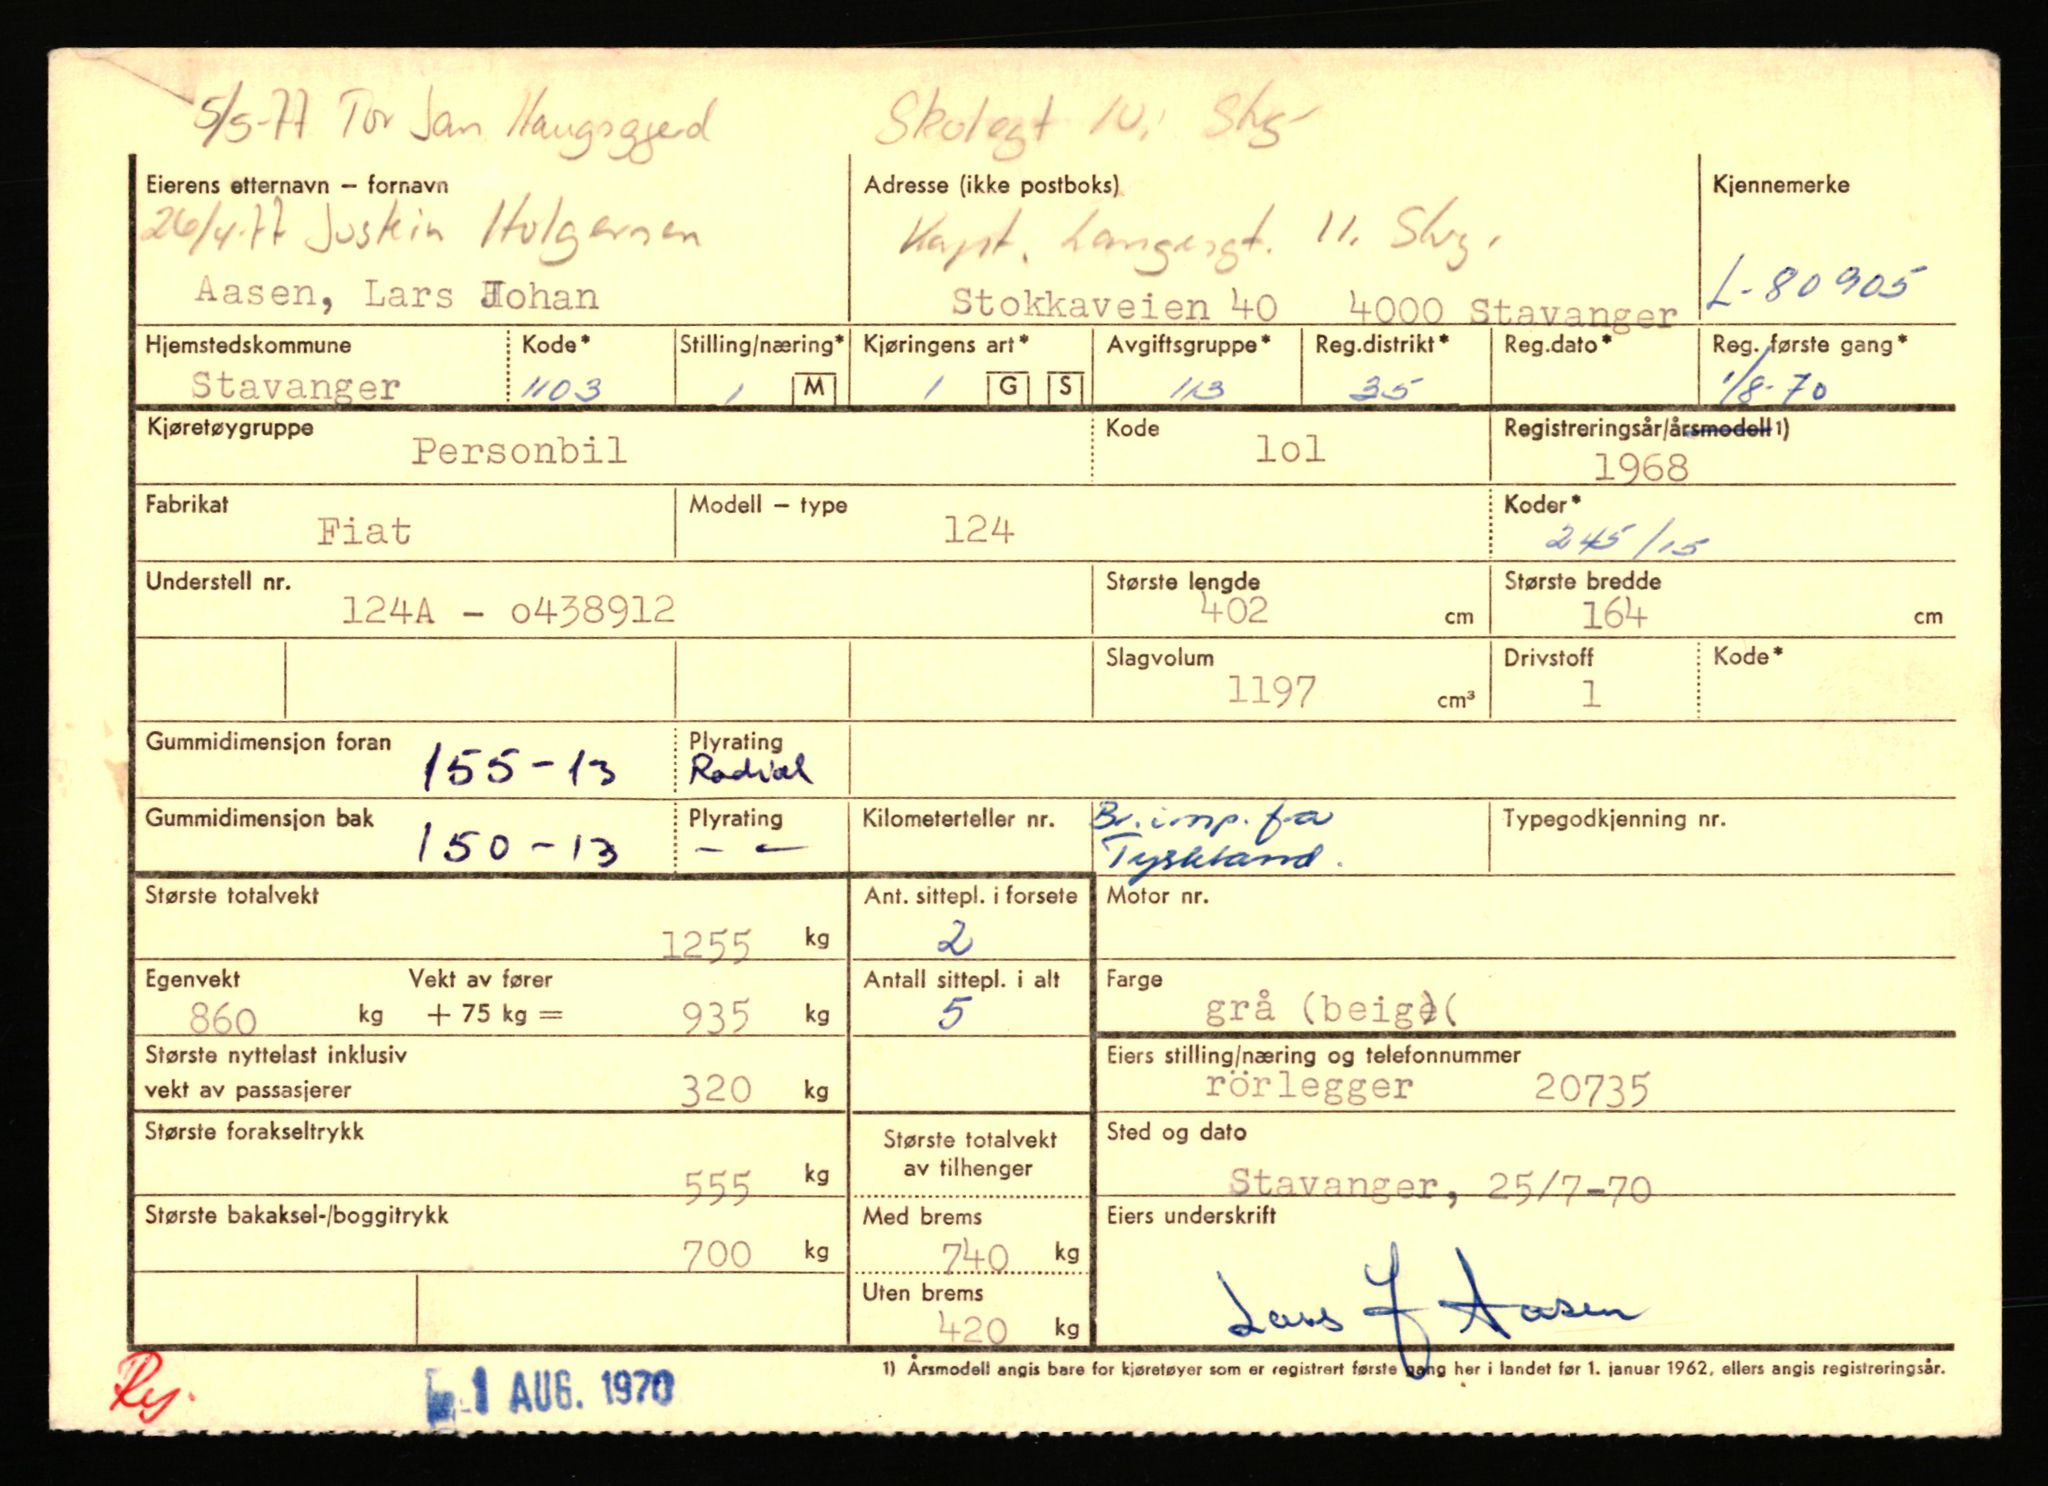 5/5-77 Tor Jan Haugsgjerd Skolegt 10, Stvg
Eierens etternavn – fornavn Adresse (ikke postboks) Kjennemerke
26/4-77 Jostein Holgersen Kapt. Langesgt. 11. Stvg.
Aasen, Lars Johan Stokkaveien 40 4000 Stavanger L-80905
Hjemstedskommune Kode* Stilling/næring* Kjøringens art* Avgiftsgruppe* Reg.distrikt* Reg.dato* Reg. første gang*
Stavanger 1103 1 M 1 G S 113 35 1/8-70
Kjøretøygruppe Kode Registreringsår/årsmodell 1)
Personbil lol 1968
Fabrikat Modell – type Koder*
Fiat 124 245/15
Understell nr. Største lengde Største bredde
124A - o438912 402 cm 164 cm
Slagvolum Drivstoff Kode*
1197 cm³ 1
Gummidimensjon foran Plyrating
155-13 Radial
Gummidimensjon bak Plyrating Kilometerteller nr. Br. imp. fra Typegodkjenning nr.
150-13 – – Tyskland.
Største totalvekt Ant. sittepl. i forsete Motor nr.
1255 kg 2
Egenvekt Vekt av fører Antall sittepl. i alt Farge
860 kg + 75 kg = 935 kg 5 grå (beige)(
Største nyttelast inklusiv Eiers stilling/næring og telefonnummer
vekt av passasjerer 320 kg rörlegger 20735
Største forakseltrykk Største totalvekt Sted og dato
av tilhenger
555 kg Stavanger, 25/7-70
Største bakaksel-/boggitrykk Med brems Eiers underskrift
700 kg 740 kg
Uten brems Lars J Aasen
420 kg
1) Årsmodell angis bare for kjøretøyer som er registrert første gang her i landet før 1. januar 1962, ellers angis registreringsår.
-1 AUG. 1970